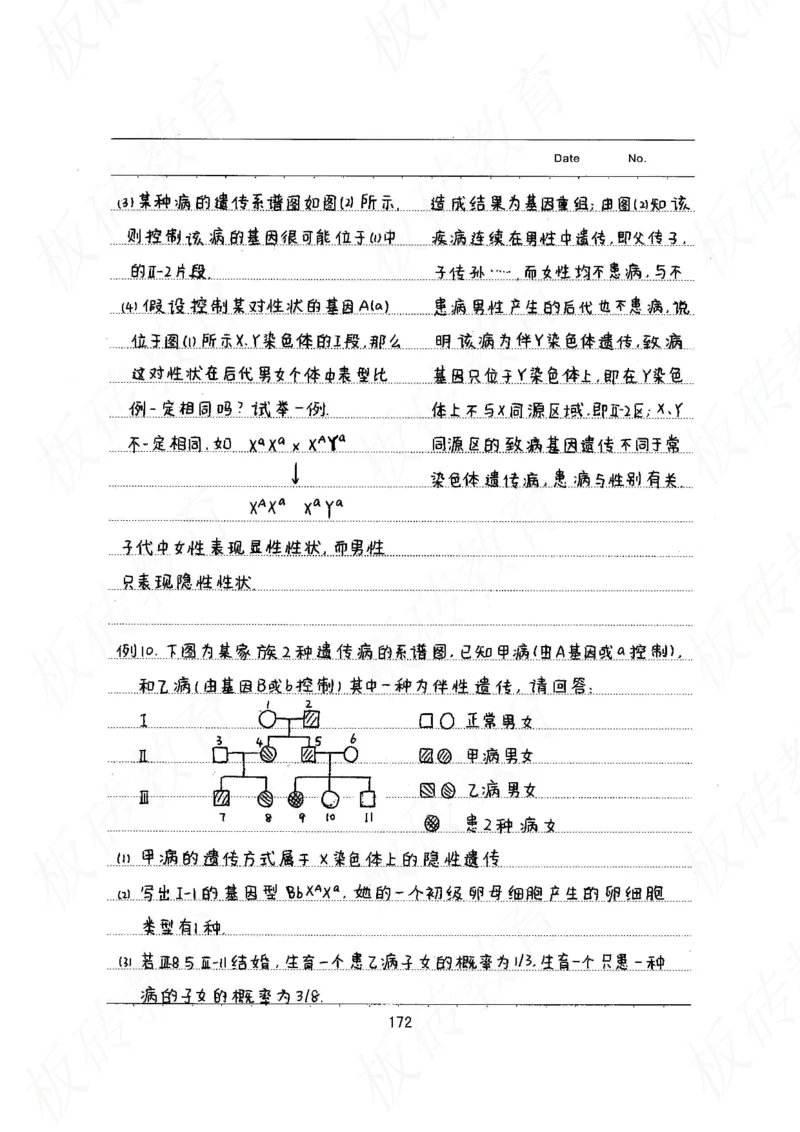 Date No.
(3) 某种病的遗传系谱图如图(2)所示,
则控制该病的基因很可能位于(1)中
的Ⅱ-2片段.
(4) 假设控制某对性状的基因A(a)
位于图(1)所示X、Y染色体的I段,那么
这对性状在后代男女个体中表型比
例一定相同吗?试举一例.
不一定相同,如 XᵃXᵃ × XᴬYᵃ
↓
XᴬXᵃ XᵃYᵃ
子代中女性表现显性性状,而男性
只表现隐性性状.
造成结果为基因重组;由图(2)知该
疾病连续在男性中遗传,即父传子,
子传孙……,而女性均不患病,与不
患病男性产生的后代也不患病,说
明该病为伴Y染色体遗传,致病
基因只位于Y染色体上,即在Y染色
体上不与X同源区域,即Ⅱ-2区;X、Y
同源区的致病基因遗传不同于常
染色体遗传病,患病与性别有关.
例10. 下图为某家族2种遗传病的系谱图,已知甲病(由A基因或a控制),
和乙病(由基因B或b控制)其中一种为伴性遗传,请回答:
I 1 2 正常男女
Ⅱ 3 4 5 6 甲病男女
Ⅲ 乙病男女
7 8 9 10 11 患2种病女
(1) 甲病的遗传方式属于X染色体上的隐性遗传
(2) 写出I-1的基因型BbXᴬXᵃ,她的一个初级卵母细胞产生的卵细胞
类型有1种.
(3) 若Ⅲ8与Ⅲ-11结婚,生育一个患乙病子女的概率为1/3,生育一个只患一种
病的子女的概率为3/8.
172
板砖教育